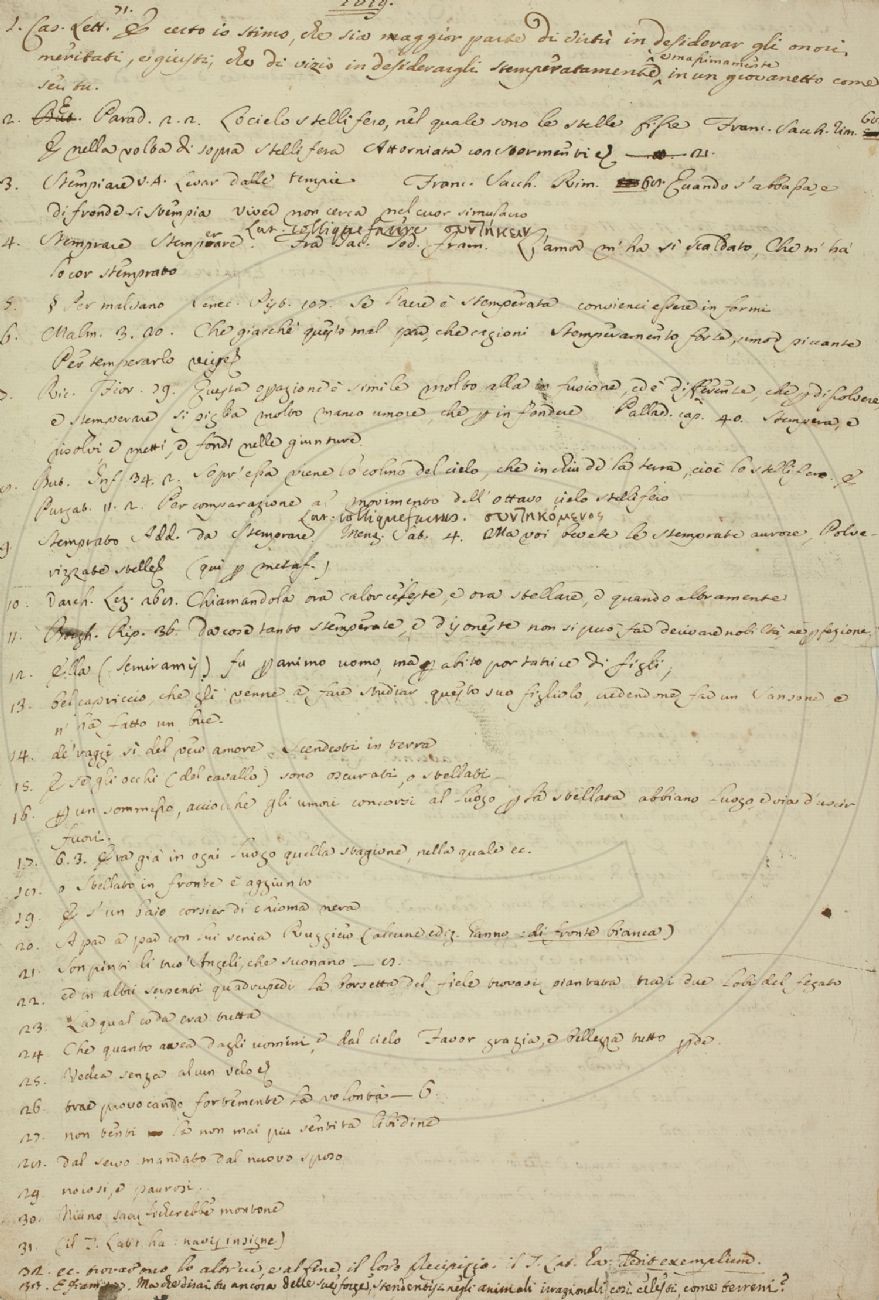 1. Cas. Lett. 71. E certo io stimo, che sia maggior parte di virtù in desiderar gli onori
meritati, e giusti, che di vizio in desiderargli stemperatamente, e massimamente in un giovanetto come
sei tu.
2. Parad. 2. 2. Lo cielo stellifero, nel quale sono le stelle fisse Franc. Sacch. Rim.
E nella volta di sopra stellifera Attorniata con stormenti 21.
3. Stempiare v. a. Levar dalle tempie Franc. Sacch. Rim. Quando s'abbassa, e
di fronde si stempia
4. Stemprare Stemperare. Lat. colliquefacere συντήκειν Fra Jac. Tod. L'amor m'ha sì scaldato, Che m'ha
lo cor stemprato
5. § Per malsano Se l'aere è stemperata convienci essere infermi
6. Malm. 3. Che giacchè questo mal par, che cagioni Stemperamento forte, umor piccante
Per temperarlo
7. Ric. Fior. 79. Questa operazione è simile molto alla infusione, ed è differente, che dissolvere,
e stemperare si piglia molto manco umore, che infondere Pallad. cap. 40. Stempera, e
risolvi, e metti, e fondi nelle giunture
But. Inf. 34. 2. Sopr' essa viene lo colmo del cielo, che inchiude la terra, cioè lo stellifero. E
Purgat. 11. 2. Per comparazione al movimento dell' ottavo cielo stellifero
9. Stemprato Add. da Stemprare Lat. colliquefactus. συντηκόμενος Menz. Sat. 4. Ma voi avete le stemprate aurore, Polve-
rizzate stelle (qui metaf.)
10. Varch. Lez. Chiamandola ora calor celeste, e ora stellare, e quando altramente
11. Rip. 36. da cose tanto stemperate, e disoneste non si può far derivare nobiltà, nè perfezione.
12. Ella (Semiramis) fu animo uomo, ma abito portatrice di figli,
13. bel capriccio, che gli venne a fare studiar questo suo figliolo, credendone far un Sansone e
n' ha fatto un bue.
14. de' raggi sì del vero amore Scendesti in terra
15. E se gli occhi (del cavallo) sono oscurati, o stellati
16. un sommesso, acciocchè gli umori concorsi al luogo la stellata abbiano luogo, e via d'uscir
fuori.
17. 6. 3. Era già in ogni luogo quella stagione, nella quale ec.
18. o Stellato in fronte è aggiunto
19. E s'un baio corsier di chioma nera
20. A par a par con lui venia Ruggiero (alcune ediz. hanno : di fronte bianca)
21. Son pinti li tuo' Angeli, che suonano
22. ed in altri serpenti quadrupedi la borsetta del fiele trovasi piantata tra i due lobi del fegato
23. La qual coda era tutta
24. Che quanto avea dagli uomini, e dal cielo Favor grazia, e bellezza tutto
25. Vedea senza alcun velo
26. trae provocando fortemente la volontà — 6.
27. non tenti la non mai più sentita libidine
28. dal sevo mandato dal nuovo sposo
29. nocosi, e paurosi.
30. Niuno sacrificherebbe montone
31. (il T. Lat. ha : navis insigne)
32. ec. trovarono lo altrui, e al fine il loro precipizio. il T. Lat. ha. dedit exemplum.
33. Ma che dirai tu ancora delle sue forze, stendentisi negli animali irrazionali così celesti, come terreni?